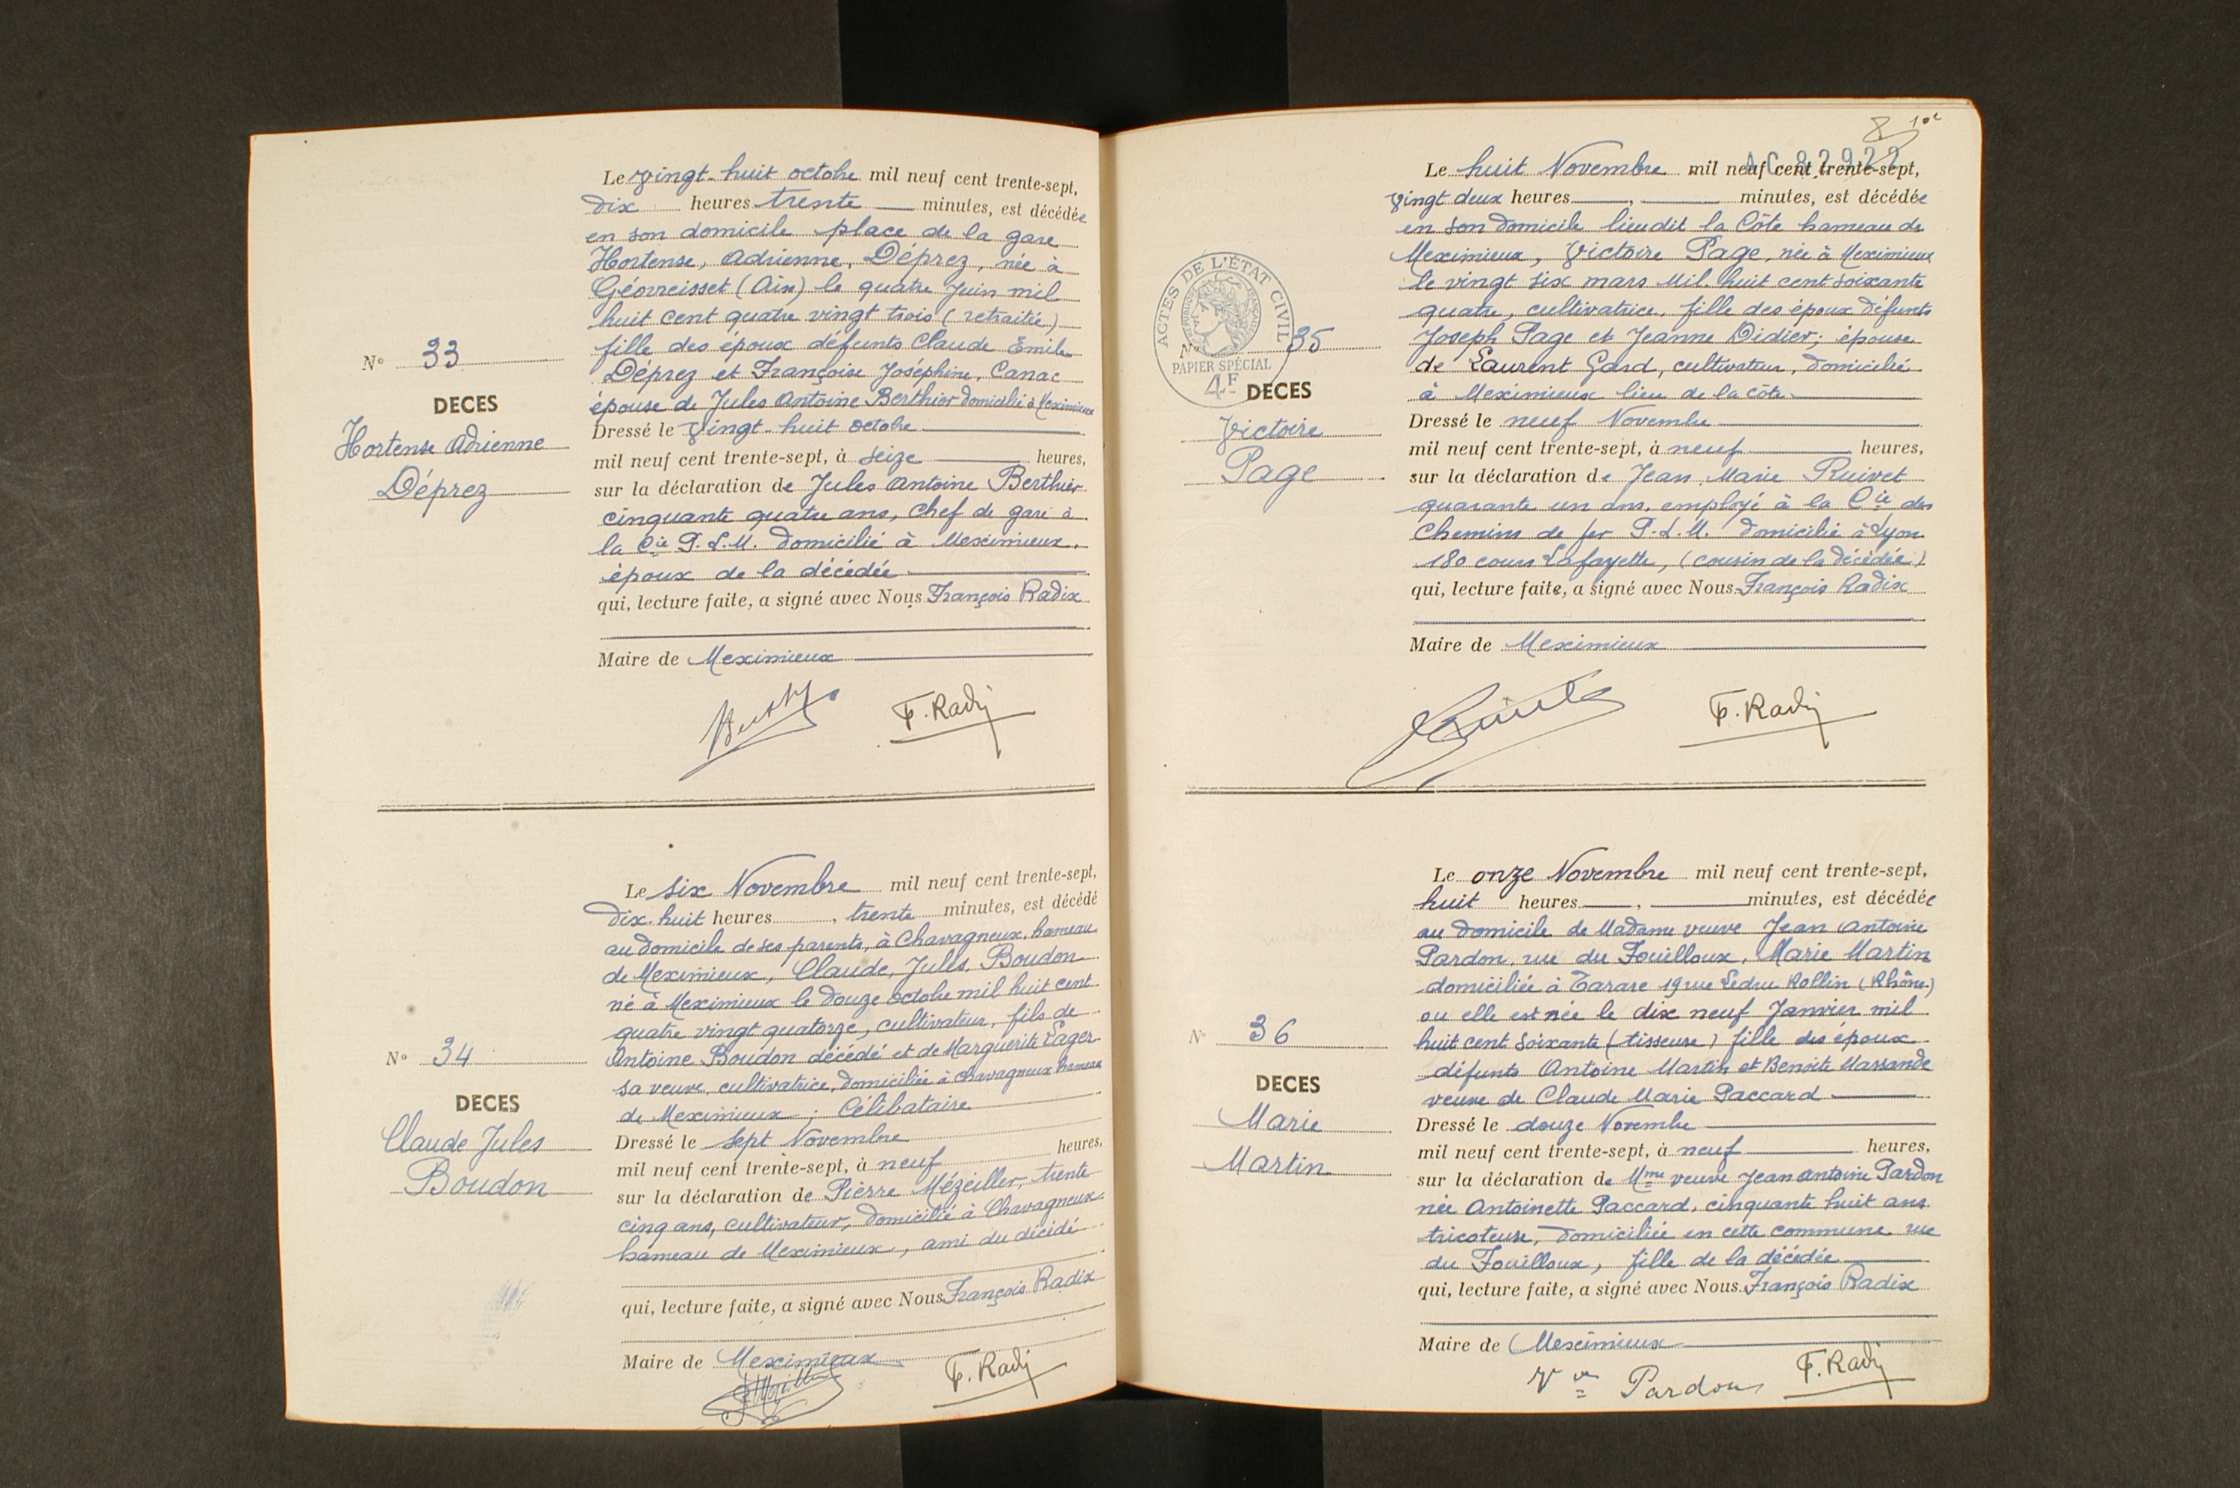 Le vingt-huit octobre mil neuf cent trente-sept,
dix heures trente minutes, est décédée
en son domicile place de la gare
Hortense, Adrienne, Déprez, née à
Géovreisset (Ain) le quatre Juin mil
huit cent quatre vingt trois (retraitée)
fille des époux défunts Claude Emile
Déprez et Françoise Joséphine, Canac
épouse de Jules Antoine Berthier domicilié à Meximieux
Dressé le vingt-huit octobre
mil neuf cent trente-sept, à seize heures,
sur la déclaration de Jules Antoine Berthier
cinquante quatre ans, chef de gare à
la Cie P.L.M. domicilié à Meximieux,
époux de la décédée
qui, lecture faite, a signé avec Nous François Radix
Maire de Meximieux
F. Radix
N° 33
DECES
Hortense Adrienne
Déprez
Le six Novembre mil neuf cent trente-sept,
dix-huit heures, trente minutes, est décédé
au domicile de ses parents, à Chavagneux, hameau
de Meximieux, Claude, Jules, Boudon
né à Meximieux le douze octobre mil huit cent
quatre vingt quatorze, cultivateur, fils de
Antoine Boudon décédé et de Marguerite Lager
sa veuve, cultivatrice, domiciliée à Chavagneux hameau
de Meximieux; Célibataire
Dressé le sept Novembre
mil neuf cent trente-sept, à neuf heures,
sur la déclaration de Pierre Mézeiller, trente
cinq ans, cultivateur, domicilié à Chavagneux
hameau de Meximieux, ami du décédé
qui, lecture faite, a signé avec Nous François Radix
Maire de Meximieux
F. Radix
N° 34
DECES
Claude Jules
Boudon
8
Le huit Novembre mil neuf cent trente-sept,
vingt deux heures, minutes, est décédée
en son domicile lieudit la Côte hameau de
Meximieux, Victoire Page, née à Meximieux
le vingt six mars mil huit cent soixante
quatre, cultivatrice, fille des époux défunts
Joseph Page et Jeanne Didier; épouse
de Laurent Gard, cultivateur, domicilié
à Meximieux lieu de la côte
Dressé le neuf Novembre
mil neuf cent trente-sept, à neuf heures,
sur la déclaration de Jean Marie Ruivet
quarante un ans, employé à la Cie des
Chemins de fer P.L.M. domicilié à Lyon
180 cours Lafayette, (cousin de la décédée)
qui, lecture faite, a signé avec Nous François Radix
Maire de Meximieux
F. Radix
ACTES DE L'ÉTAT CIVIL
PAPIER SPÉCIAL
4F
N° 35
DECES
Victoire
Page
Le onze Novembre mil neuf cent trente-sept,
huit heures, minutes, est décédée
au domicile de Madame veuve Jean Antoine
Pardon, rue du Fouilloux, Marie Martin
domiciliée à Tarare 19 rue Ledru Rollin (Rhône)
ou elle est née le dix neuf Janvier mil
huit cent soixante (tisseuse) fille des époux
défunts Antoine Martin et Benoite Marsande
veuve de Claude Marie Paccard
Dressé le douze Novembre
mil neuf cent trente-sept, à neuf heures,
sur la déclaration de Mme veuve Jean Antoine Pardon
née Antoinette Paccard, cinquante huit ans
tricoteuse, domiciliée en cette commune rue
du Fouilloux, fille de la décédée
qui, lecture faite, a signé avec Nous François Radix
Maire de Meximieux
Vve Pardon F. Radix
N° 36
DECES
Marie
Martin